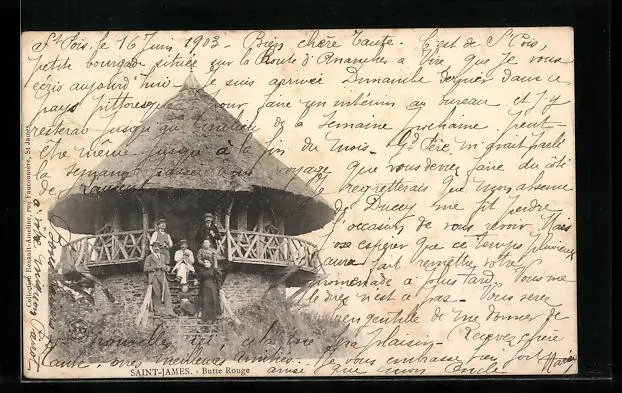 St Pois, le 16 Juin 1903 - Bien chère Tante. C'est de St Pois,
petite bourgade située sur la Route d'Avranches à Vire que je vous
écris aujourd'hui. Je suis arrivée Dimanche dernier dans ce
pays pittoresque pour faire un intérim au bureau et j'y
resterai jusqu'au milieu de la semaine prochaine peut-
être même jusqu'à la fin du mois. Gd Père m'avait parlé
la semaine voyage que vous deviez faire du côté
de Laurent Je regretterais que mon absence
de Ducey me fit perdre
l'occasion de vous revoir. Mais
espérer que ce temps pluvieux
aura fait remettre votre
promenade à plus tard. Vous me
le direz n'est-ce pas. Vous serez
bien gentille de me donner de
nouvelles ici, cela me fera plaisir. Recevez chère
Tante, mes meilleures amitiés. Je vous embrasse bien fort
ainsi que mon Oncle. Marie
Collection Renault-Ameline, rue Fauconnière, St-James
SAINT-JAMES. - Butte Rouge